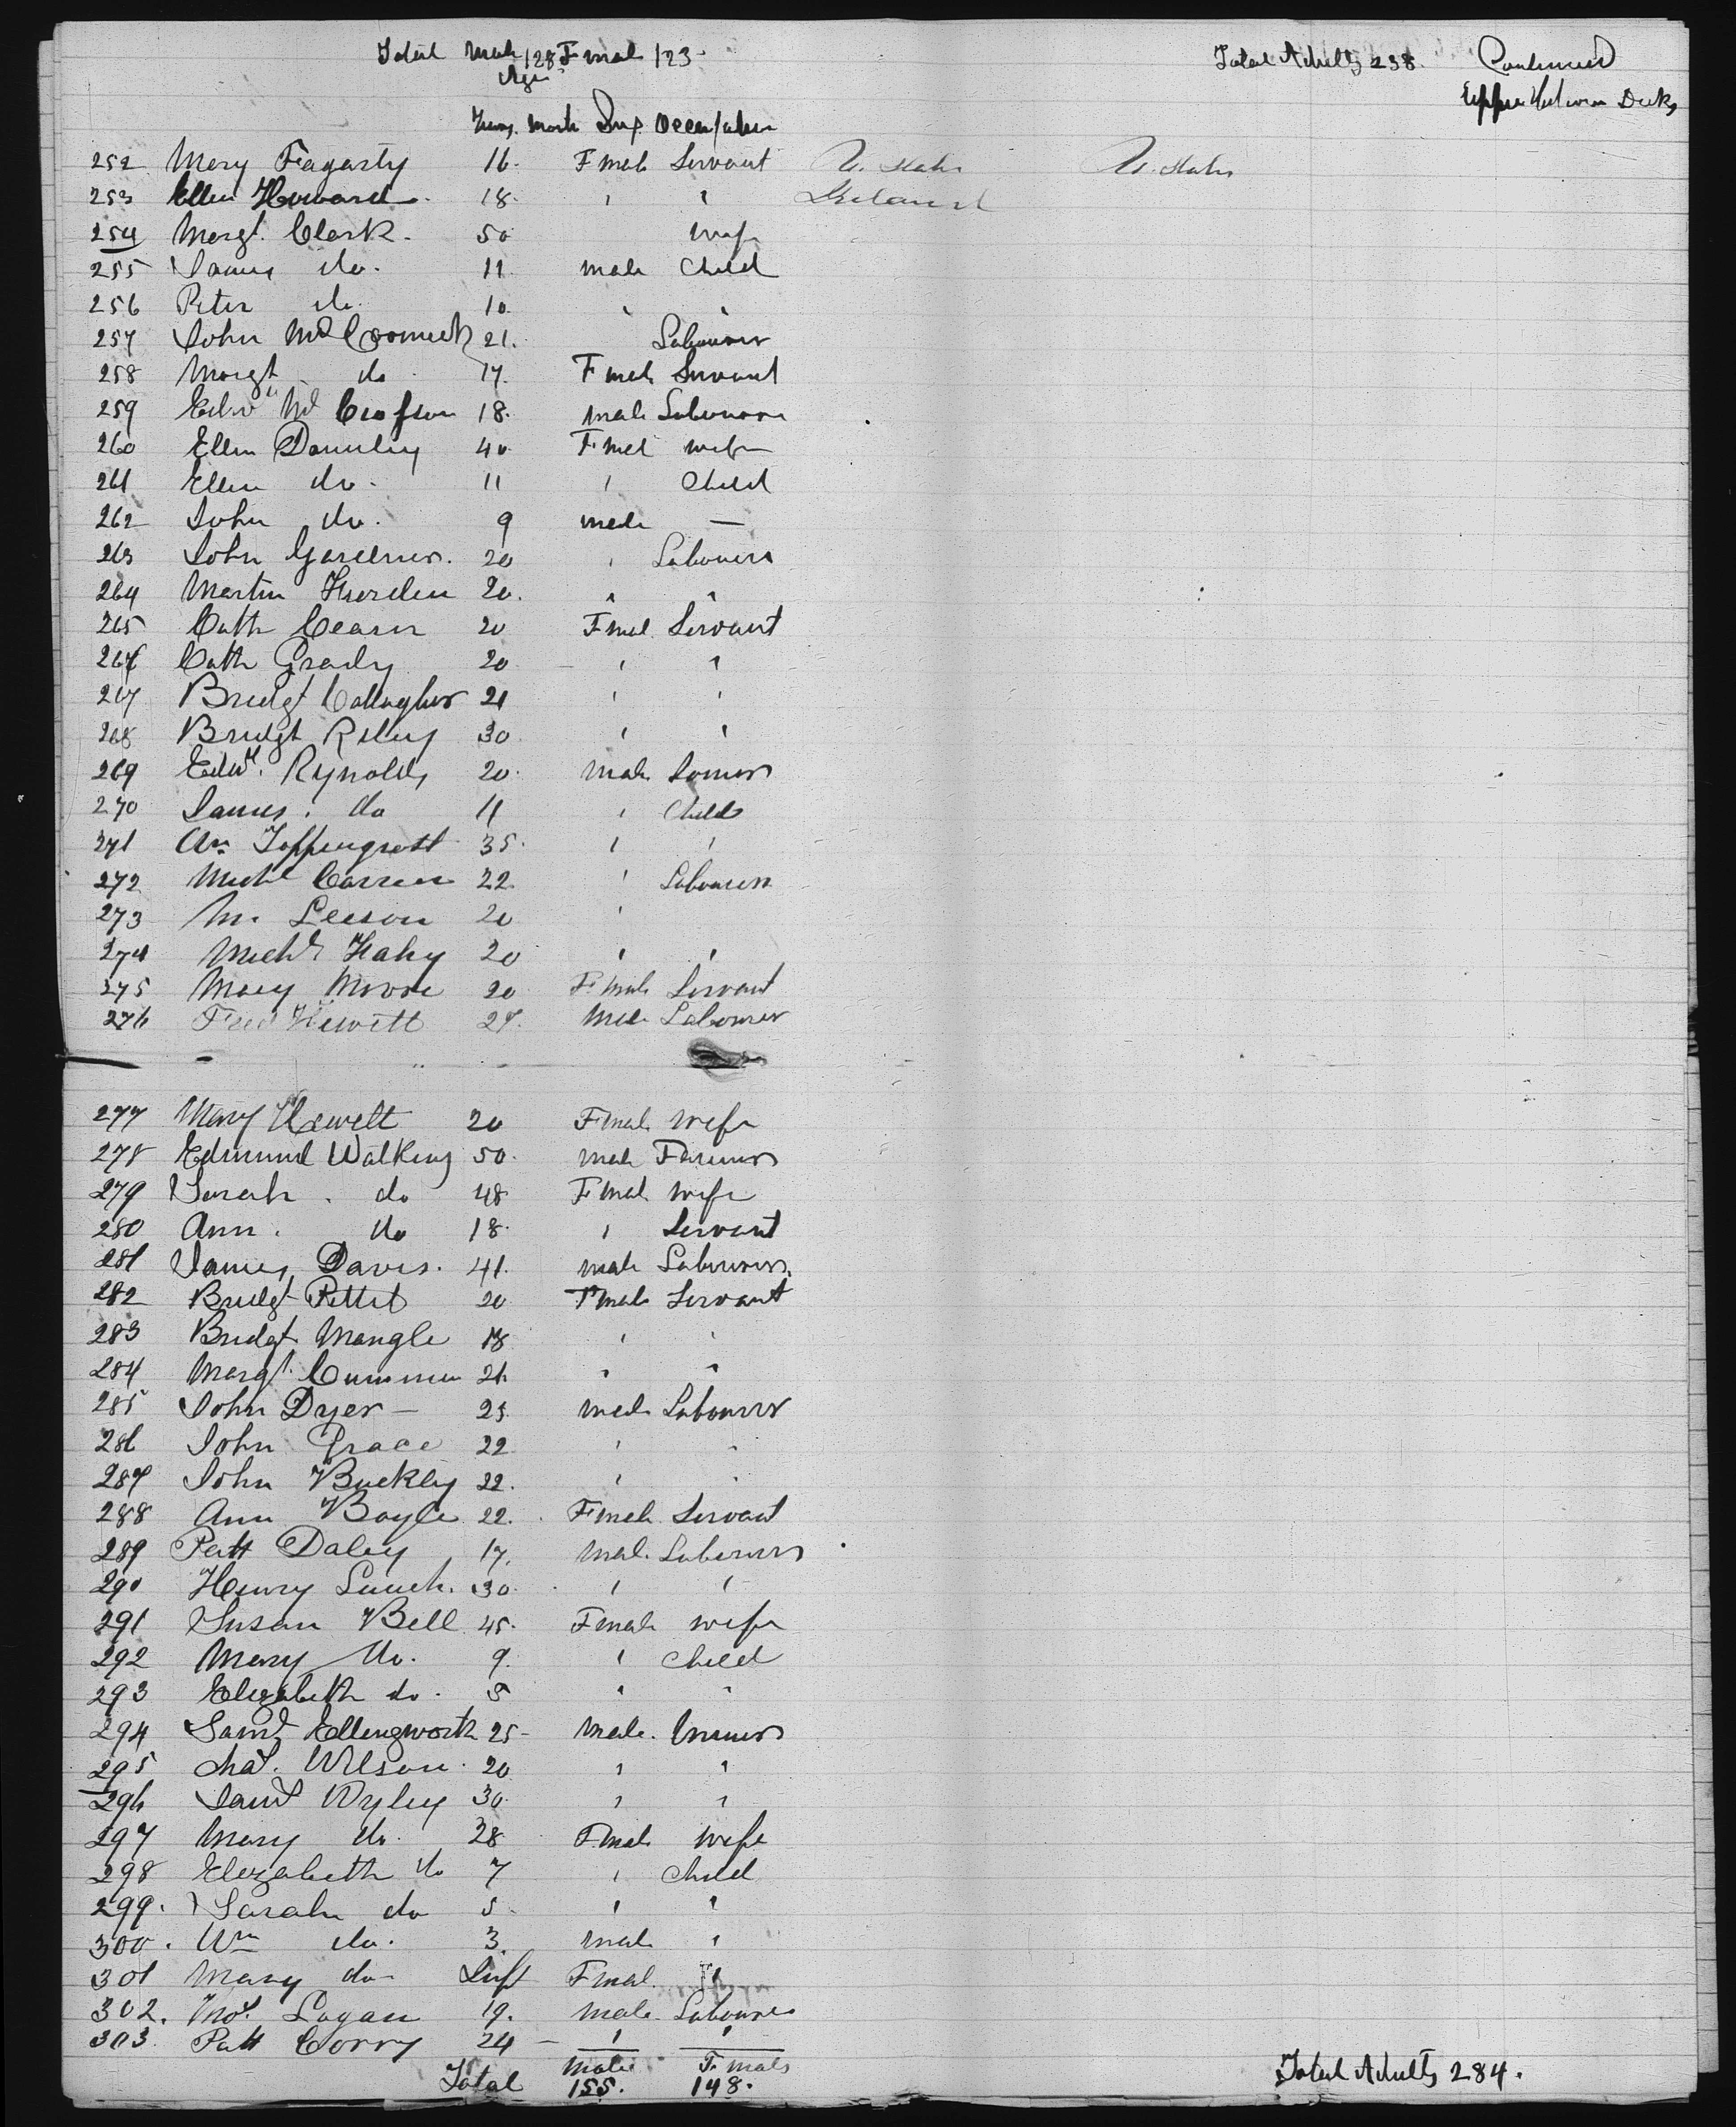 Total Male 128 Fmal 123 Total Adults 238. Continued
Age Upper Between Decks
Years Month Sex Occupation
252 Mary Fagarty 16. Fmale Servant U. States U. States
253 Ellen Howard. 18. " " Ireland
254 Margt. Clark. 50 Wife
255 James do. 11. male Child
256 Peter do 10. " "
257 John McCormick 21. Labourer
258 Margt do 17. Fmale Servant
259 Edwd Mc 18. male Labourer
260 Ellen 40 Fmal wife
261 Ellen do. 11 " Child
262 John do. 9 male —
263 John Gardener. 20 " Labourer
264 Martin 20. " "
265 Cath Cearn 20 Fmal Servant
266 Cath Grady 20 " "
267 Bridgt Callagher 21 " "
268 Bridgt Reley 30 " "
269 Edwd. Rynolds 20. male
270 James. do 11 " Child
271 35. " "
272 Michl 22. " Labourer
273 M. Leeson 20 "
274 Michl Fahy 20 " "
275 Mary Moore 20 Fmale Servant
276 Fred Hewitt 27. Male Labourer
277 Mary Hewett 20 Fmale wife
278 Edmund Walking 50. male Farmer
279 Sarah. do 48 Fmal wife
280 Ann. do 18. " Servant
281 James Davis. 41. male Labourer.
282 Bridgt Pettit 20 Fmale Servant
283 Bridgt Mangle 18 " "
284 Margt. Cummin 21. " "
285 John Dyer — 25 male Labourer
286 John Grace 22 " "
287 John Buckley 22. " "
288 Ann Boyle 22. Fmale Servant
289 Patt Daley 17. Male Labourer
290 Henry 30. " "
291 Susan Bell 45. Fmale wife
292 Mary do. 9. " Child
293 Elizabeth do. 5 " "
294 Saml Ellingworth 25 - Male. Miner
295 Chas. Wilson. 20 " "
296 Saml Wyley 30. " "
297 Mary do. 28 Fmale Wife
298 Elizabeth do 7 " Child
299. Sarah do 5. " "
300. Wm do. 3. male "
301 Mary do Inft Fmal. "
302. Thos. Logan 19. male Labourer
303. Patt Corry 24 — " "
Total Males 155. Fmals 148. Total Adults 284.